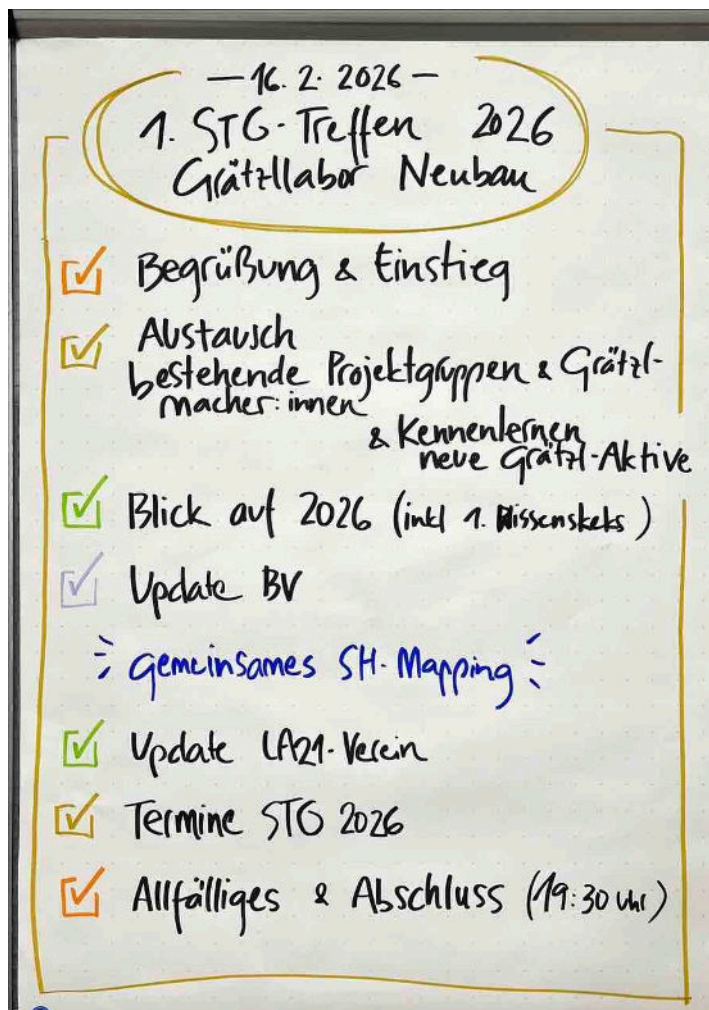 — 16. 2. 2026 —
1. STG-Treffen 2026
Grätzllabor Neubau
Begrüßung & Einstieg
Austausch
bestehende Projektgruppen & Grätzl-
macher:innen
& Kennenlernen
neue Grätzl-Aktive
Blick auf 2026 (inkl 1. Wissenskeks)
Update BV
gemeinsames SH-Mapping
Update LA21-Verein
Termine STG 2026
Allfälliges & Abschluss (19:30 Uhr)